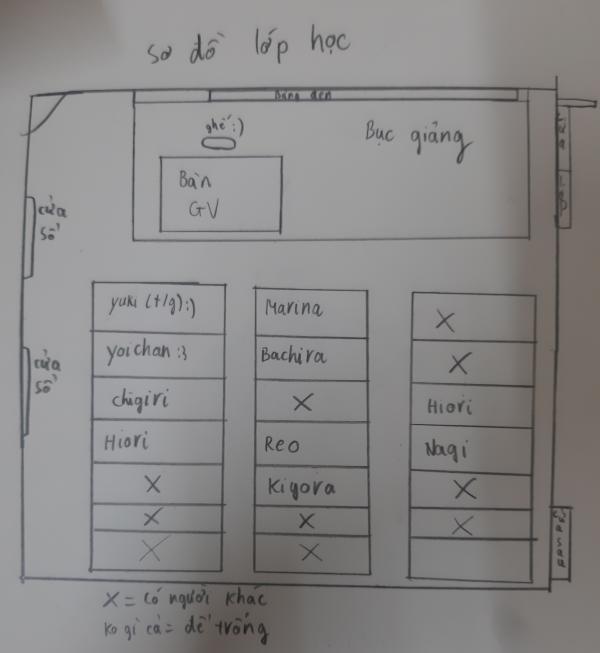 sơ đồ lớp học
Bảng đen
ghế :)
Bục giảng
Bàn
GV
cửa
sổ
cửa
sổ
yuki (t/g):)
Marina
X
yoichan :3
Bachira
X
chigiri
X
Hiori
Hiori
Reo
Nagi
X
Kiyora
X
X
X
X
X
X
X = có người khác
ko gì cả = để trống